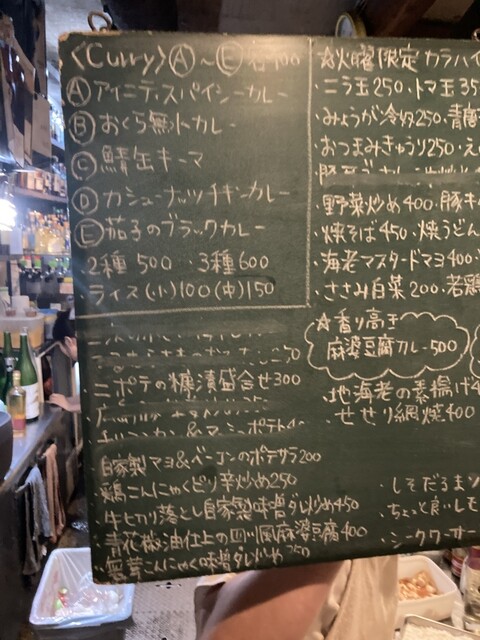 〈Curry〉Ⓐ～Ⓔ各400
Ⓐアイニティスパイシーカレー
Ⓑおくら無水カレー
Ⓒ鯖缶キーマ
Ⓓカシューナッツチキンカレー
Ⓔ茄子のブラックカレー
2種 500 ・3種 600
ライス(小)100(中)150
・ニポテの糠漬盛合せ300
・自家製マヨ&ベーコンのポテサラ200
・鶏こんにゃくピリ辛炒め250
・牛ヒカリ落とし自家製味噌ダレ炒め450
・青花椒油仕上の四川風麻婆豆腐400
・無草こんにゃく味噌ダレ炒め250
☆火曜限定カラハイ
・ニラ玉250・トマ玉35
・みょうが冷奴250・青
・おつまみきゅうり250・え
・野菜炒め400・豚キ
・焼そば450・焼うどん
・海老マスタードマヨ400
・ささみ白菜200・若鶏
☆香り高き
麻婆豆腐カレー500
・地海老の素揚げ4
・せせり網焼400
・しそだるま
・ちょっと良いレモ
・シークワーサー